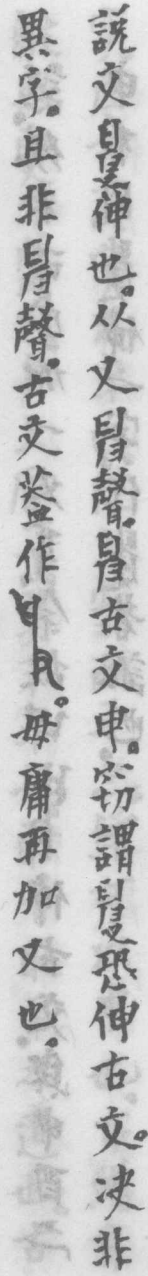 説文𠭙伸也。从又𢑚聲。𢑚古文申。窃謂𠭙恐伸古文。决非
異字。且非𢑚聲。古文蓋作。毋庸再加又也。